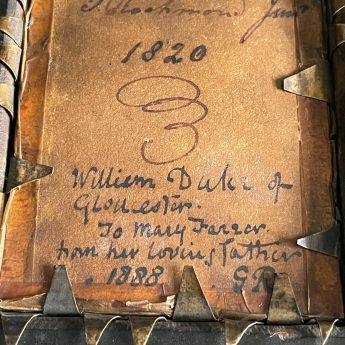 Junr
1820
William Duke of
Gloucester.
To Mary Farrer.
from her loving father
. 1888 . G R.